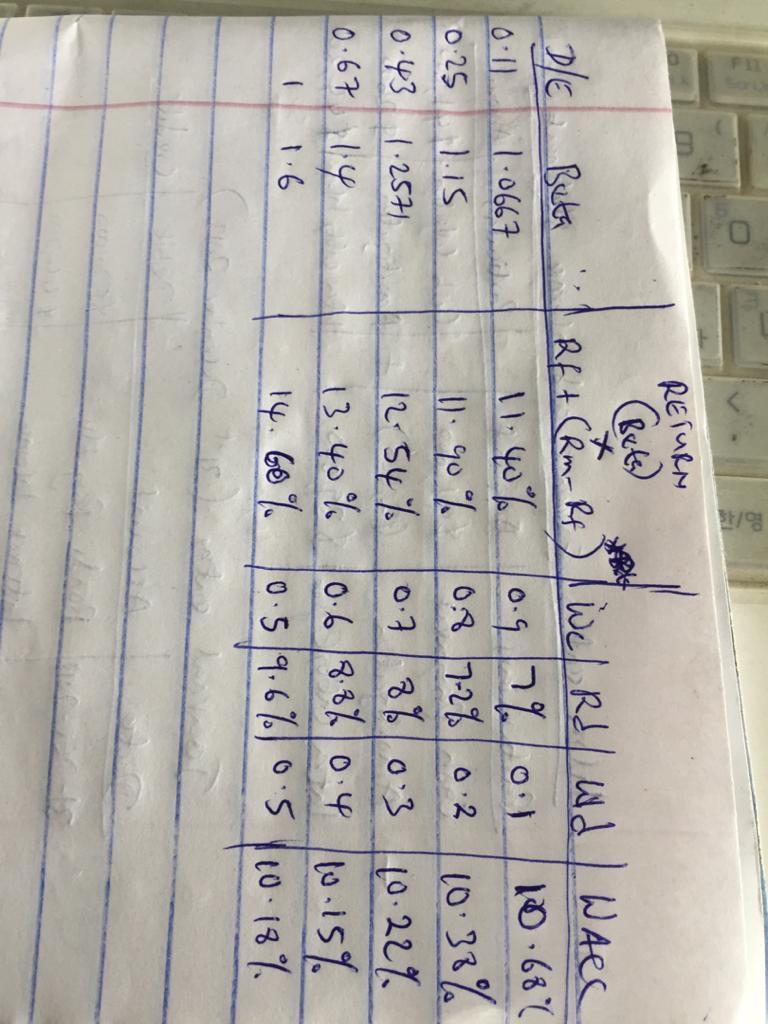 RETURN
(Beta)
D/E Beta Rf + (Rm - Rf) We Rd Wd WACC
x
0.11 1.0667 11.40% 0.9 7% 0.1 10.68%
0.25 1.15 11.90% 0.8 7.2% 0.2 10.38%
0.43 1.2571 12.54% 0.7 8% 0.3 10.22%
0.67 1.4 13.40% 0.6 8.8% 0.4 10.15%
1 1.6 14.60% 0.5 9.6% 0.5 10.18%